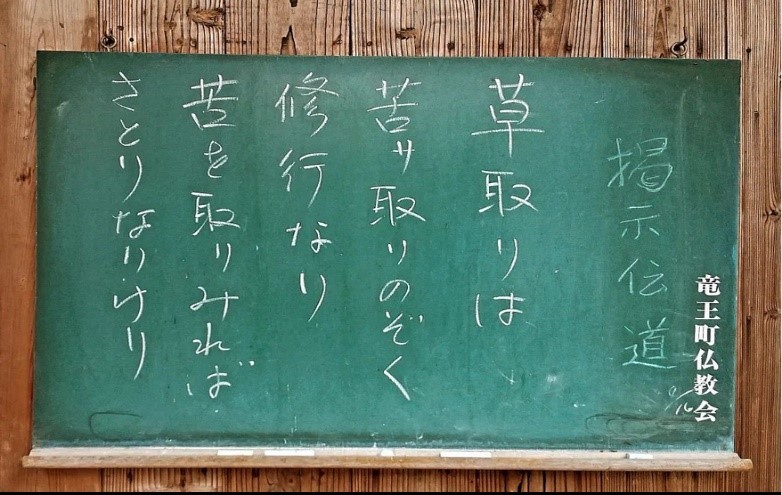 竜王町仏教会
掲示伝道
草取りは
苦サ取りのぞく
修行なり
苦を取りみれば
さとりなりけり